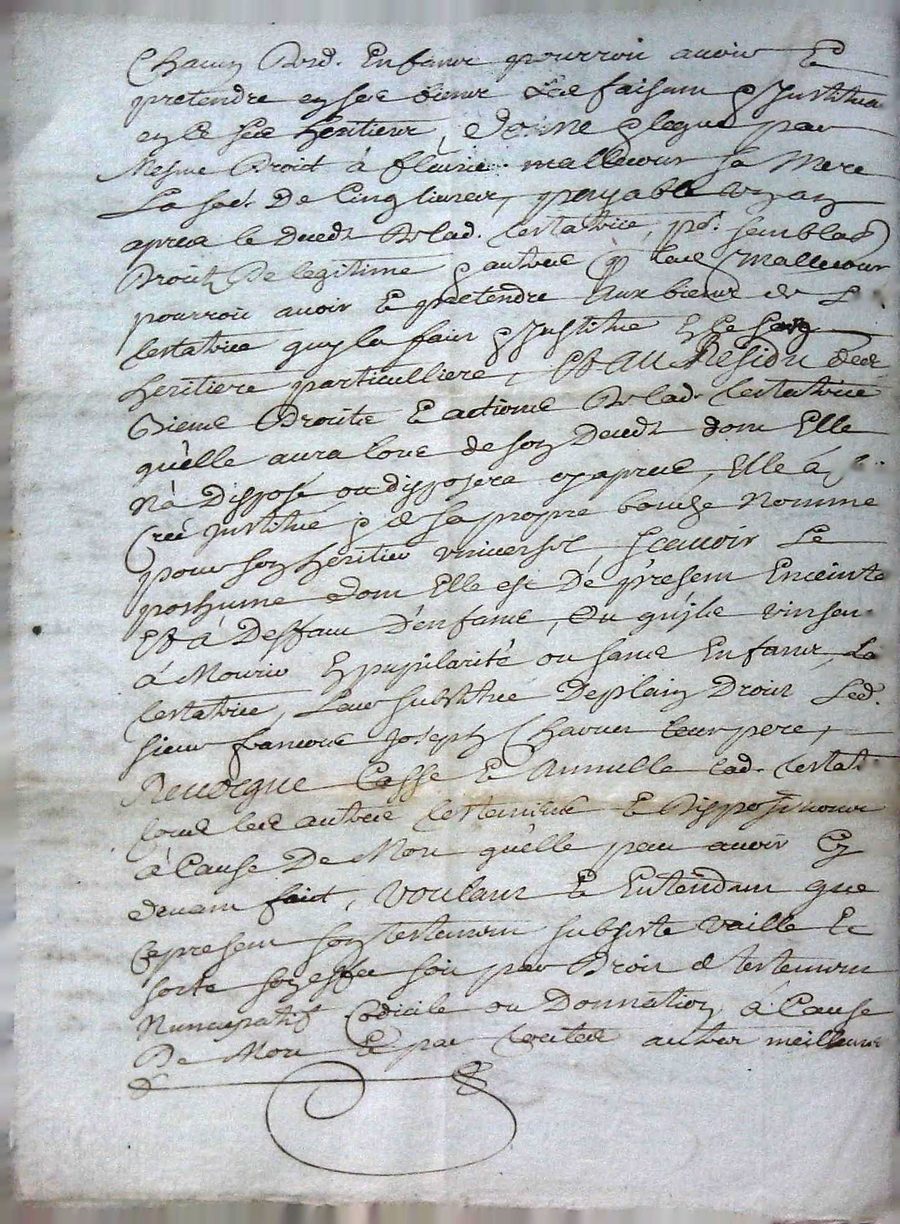 Chacun desd. Enfans pourroit avoir Et
pretendre en ses biens Les faisant & Instituant
en ce ses heritiers, donne & legue par
Mesme Droit à fleurie mallecour sa Mere
La so.e De Cinq livres, payable un an
apres le deceds de lad. testatrice, p.r semblable
Droit De legitime & autres que lad. Mallecour
pourroit avoir Et pretendre Aux biens de L.
testatrice quy la fait & Institue En ce son
heritiere particulliere, Et au Residu de ses
Biens Droits Et actions de lad. testatrice
qu'elle aura lors de son Deceds dont Elle
N'a Disposé ou disposera cy apres, Elle à
Creé Institué & de sa propre bouche Nomme
pour son heritier universel Scavoir Le
posthume dont Elle est De present Enceinte
Et à Deffaut D'enfans, Ou qu'ils vinsent
à Mourir En pupilarité ou sans Enfans, La
testatrice, Leur substitue De plain Droit Led.
sieur francois Joseph Chavin leur pere,
Revocque Casse Et Annulle lad. testat.
tous les autres testamens Et Dispositions
à Cause De Mort qu'elle peut avoir Cy
devant fait, Voulant Et Entendant que
Ce present son testament subsiste vaille Et
sorte son effet soit par Droit de testament
Nuncupatif Codicile ou Donnation à Cause
De Mort Et par toutes autres meilleures